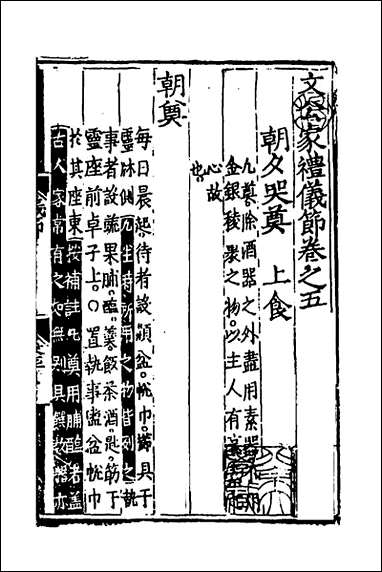 文公家禮儀節卷之五
朝夕哭奠 上食
凡奠除酒器之外盡用素器
金銀稜裹之物。以主人有哀
心故
也。
朝奠
每日晨起侍者設頮盆。帨巾。櫛具于
靈牀側。凡生時所用之物皆列之。執
事者設蔬果脯。醢。羹。飯茶酒。匙。筯于
靈座前卓子上。○置執事盥盆帨巾
於其座東。按補註凡奠用脯醢者蓋
古人家常有之如無別具饌數器亦